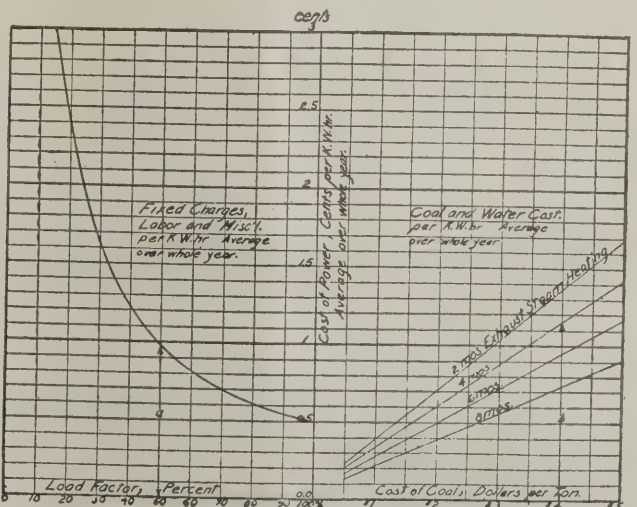 cents
3
2.5
2
1.5
1
0.5
0.0
Cost of Power, Cents per K.W.hr.
Average over whole year.
Fixed Charges,
Labor and Misc'l.
per K.W.hr Average
over whole year.
Coal and Water Cost.
per K.W.hr Average
over whole year
2 mos Exhaust Steam Heating
4 mos
6 mos
8 mos.
a
Load Factor, Percent
Cost of Coal, Dollars per Ton.
0 10 20 30 40 50 60 70 80 90 100%